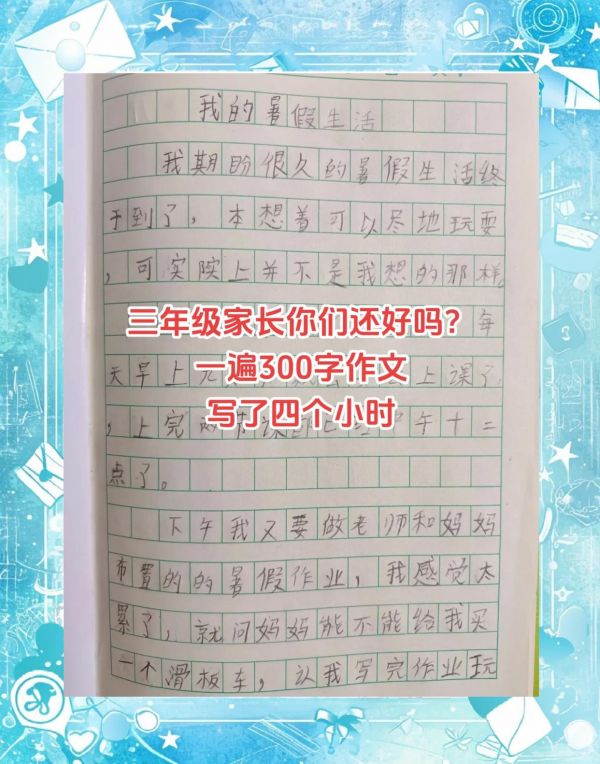 我的暑假生活
我期盼很久的暑假生活终
于到了，本想着可以尽地玩耍
，可实际上并不是我想的那样。
三年级家长你们还好吗？
每
一遍300字作文
天早上 上课了
写了四个小时
，上完 午十二
点了。
下午我又要做老师和妈妈
布置的的暑假作业，我感觉太
累了，就问妈妈能不能给我买
一个滑板车，认我写完作业玩